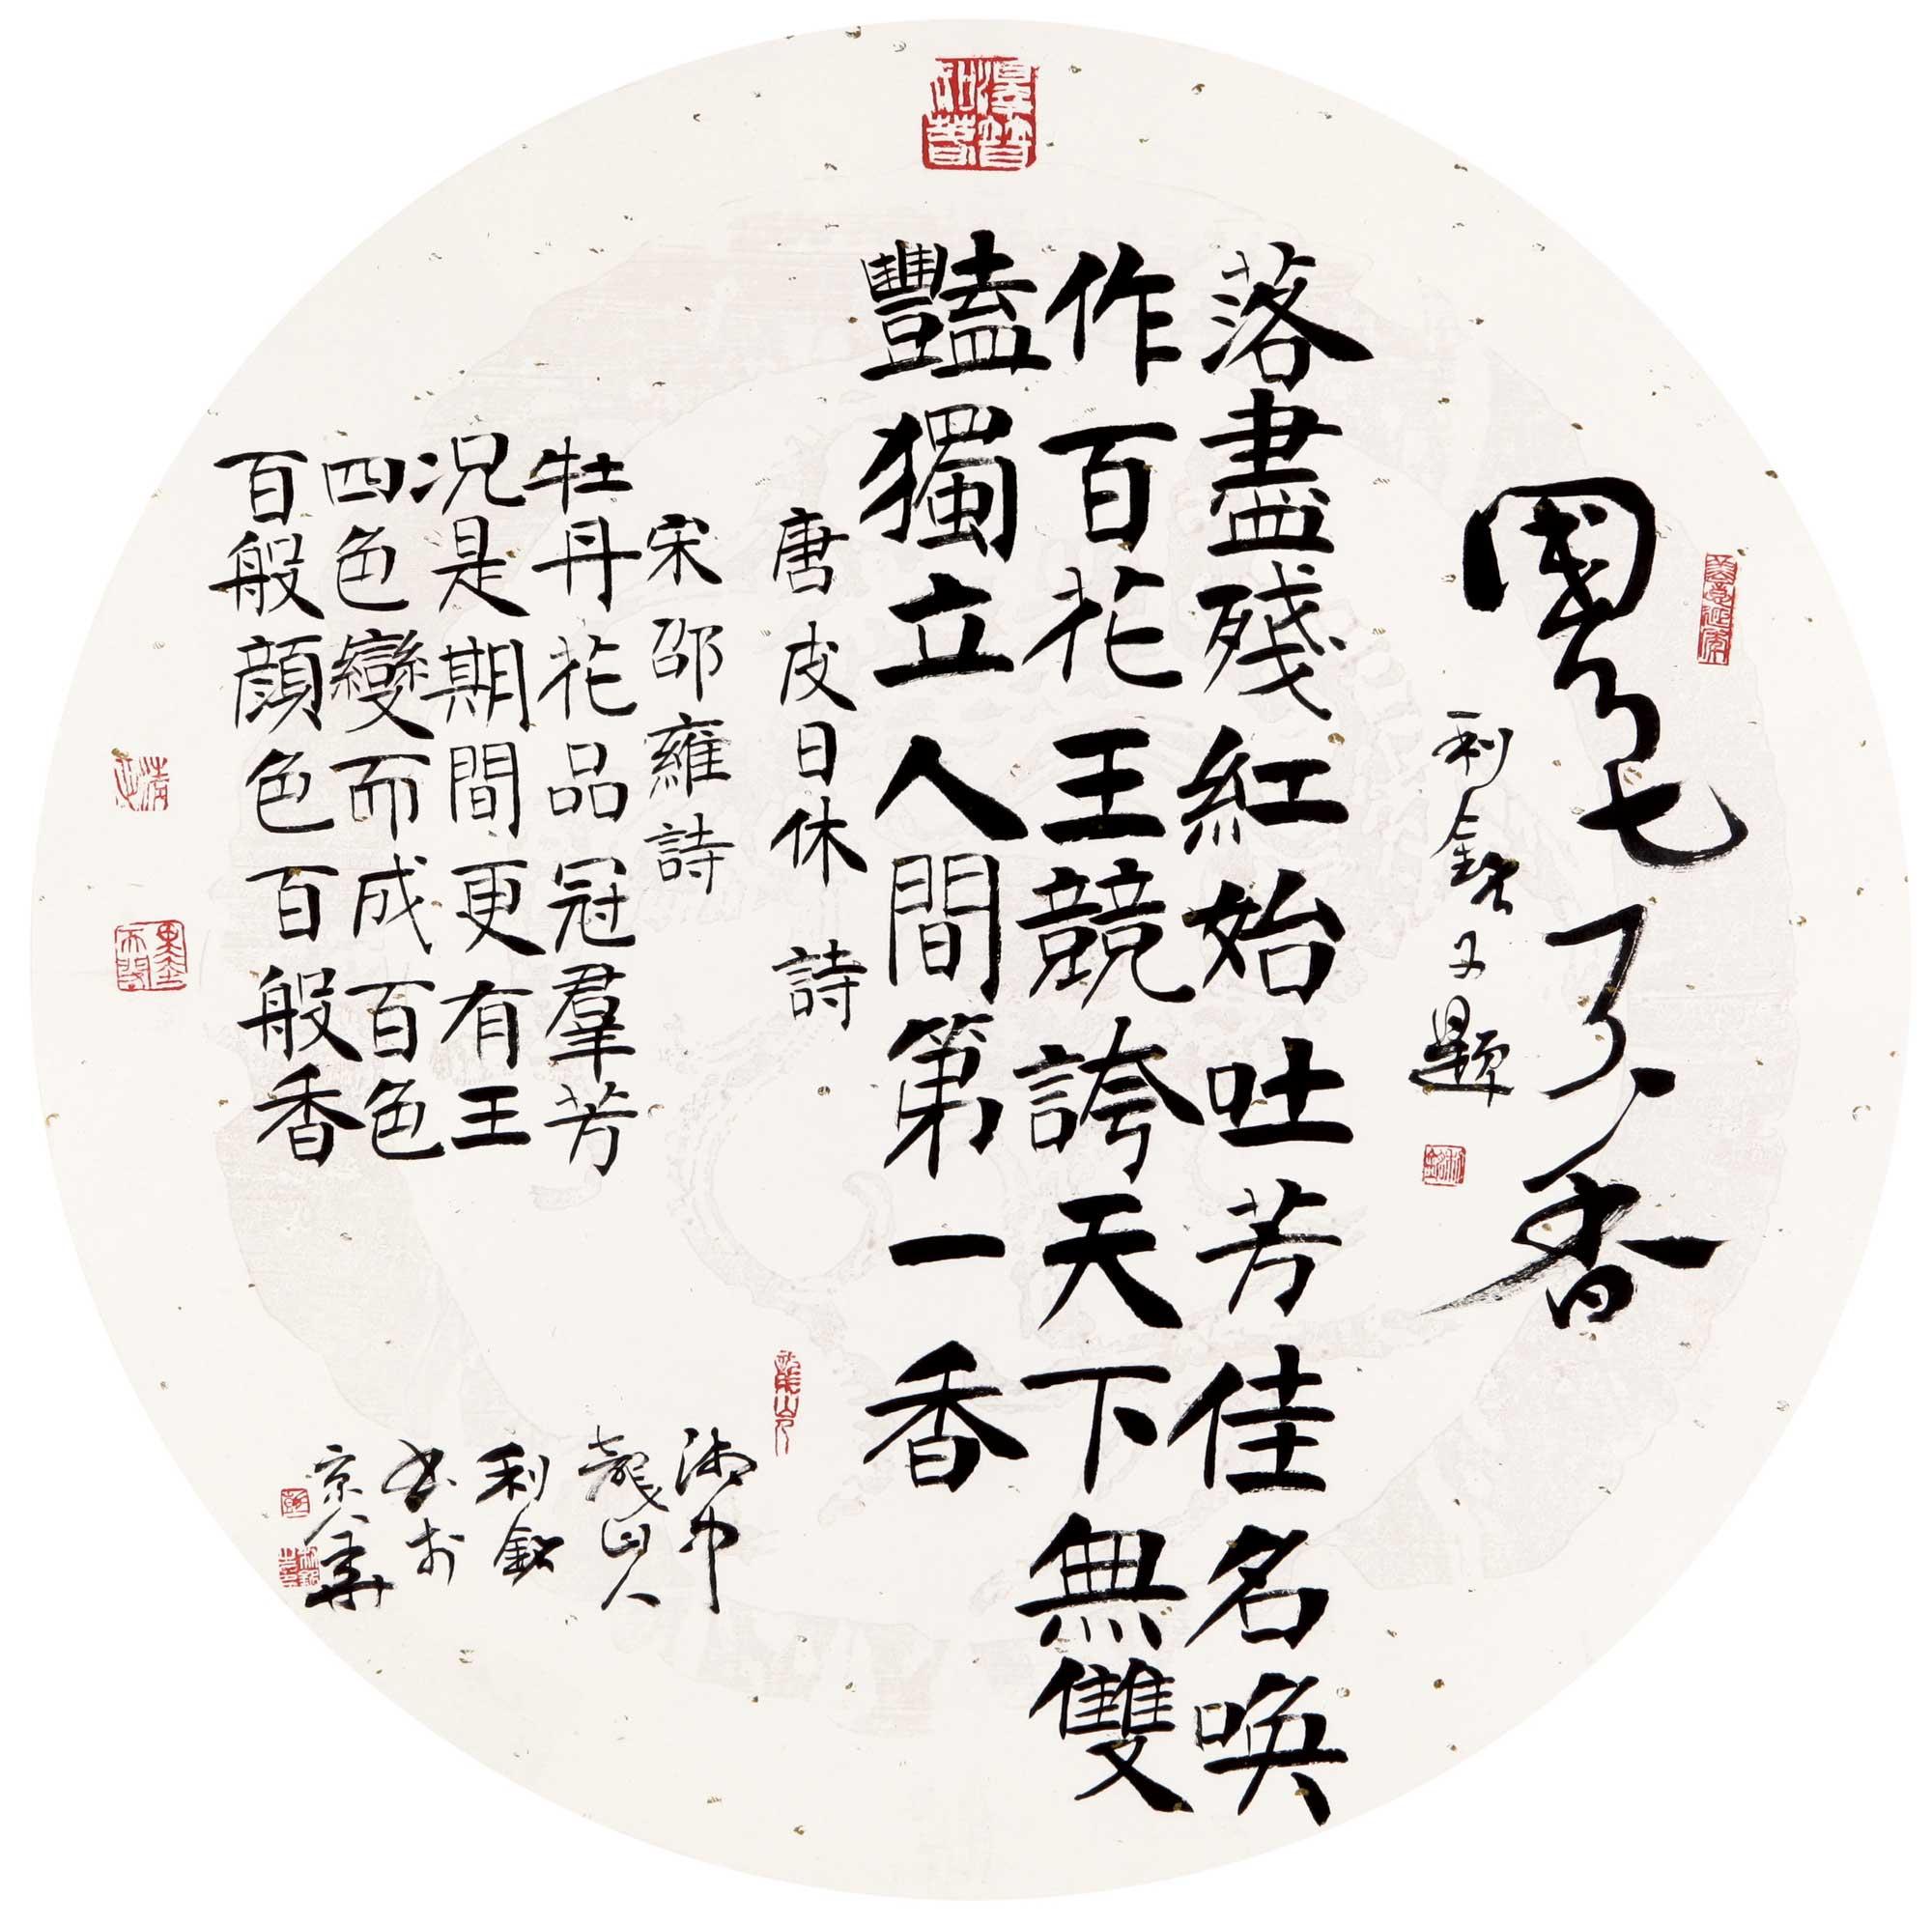 國色天香
利銘又題
落盡殘紅始吐芳佳名唤
作百花王競誇天下無雙
豔獨立人間第一香
唐皮日休詩
宋邵雍詩
牡丹花品冠羣芳
况是期間更有王
四色變而成百色
百般顔色百般香
龍山人
利銘
書於
京華